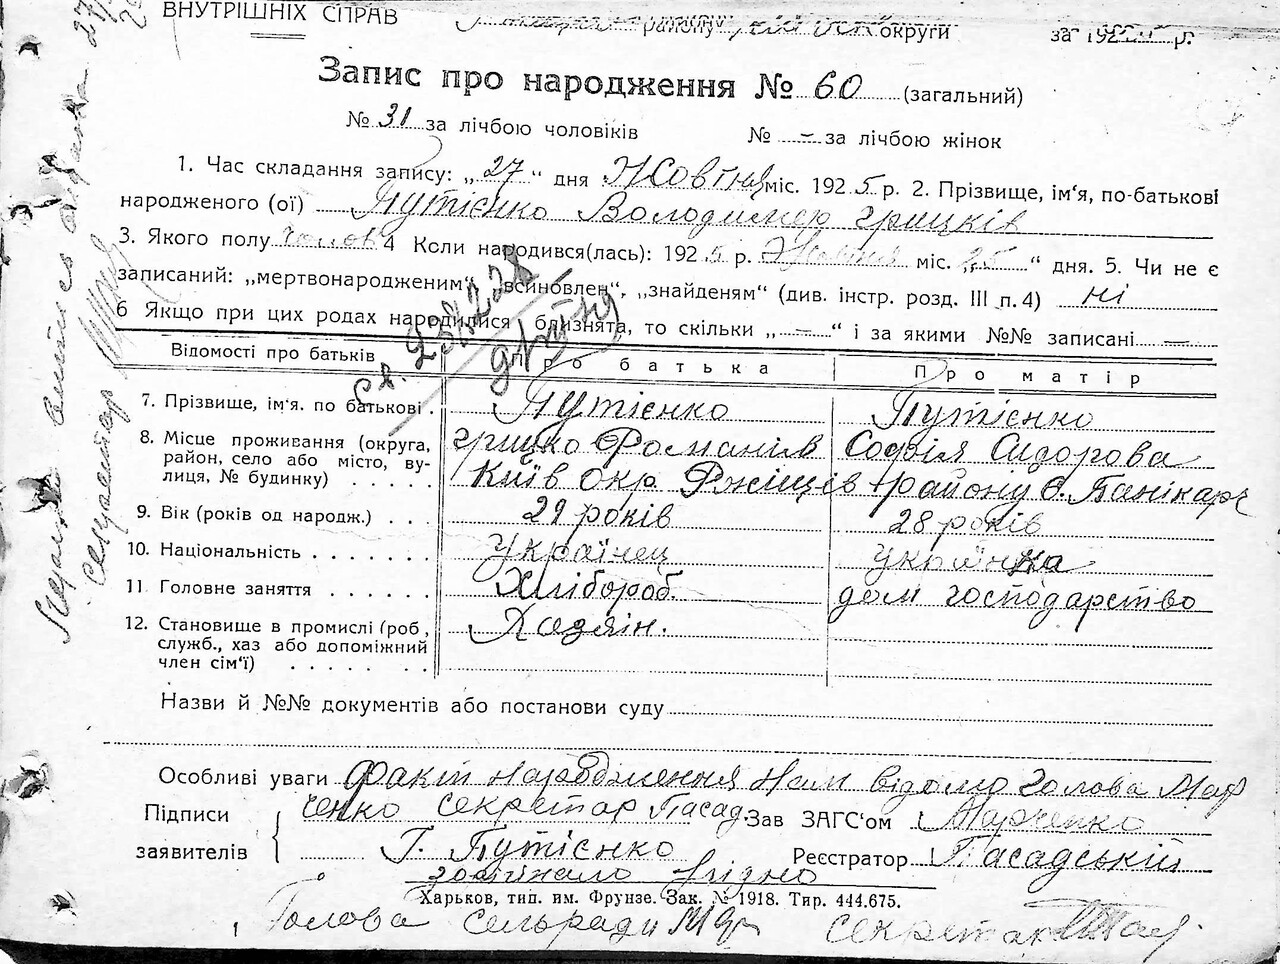 ВНУТРІШНІХ СПРАВ району округи за 192 р.
Запис про народження № 60 (загальний)
№ 31 за лічбою чоловіків № – за лічбою жінок
1. Час складання запису: „27“ дня Жовтня міс. 1925 р. 2. Прізвище, ім‘я, по-батькові
народженого (ої) Путієнко Володимер грицків
3. Якого полу чолов 4 Коли народився(лась): 1925 р. Жовтня міс. „25“ дня. 5. Чи не є
записаний: „мертвонародженим“, „всиновлен“, „знайденям“ (див. інстр. розд. III п. 4) ні
6 Якщо при цих родах народилися близнята, то скільки „–“ і за якими №№ записані –
Відомості про батьків Про батька Про матір
7. Прізвище, ім‘я. по батькові . Путієнко Путієнко
8. Місце проживання (округа, грицко Романів Софія Сидорова
район, село або місто, ву- Київ Окр. Ржищів району с. Панікарч
лиця, № будинку) . . . . .
9. Вік (років од народж.) . . . 29 років 28 років
10. Національність . . . . . . . українец українка
11 Головне заняття . . . . . . Хлібороб. дом господарство
12. Становище в промислі (роб, Хазяін.
служб., хаз або допоміжний
член сім‘ї) . . . . . . .
Назви й №№ документів або постанови суду
Особливі уваги Факт народження нам відомо голова Мар
Підписи ченко секретар Пасад Зав ЗАГС‘ом Марченко
заявителів Г. Путієнко Реєстратор Пасадський
Харьков, тип. им. Фрунзе. Зак. № 1918. Тир. 444.675.
Голова сельради секретар